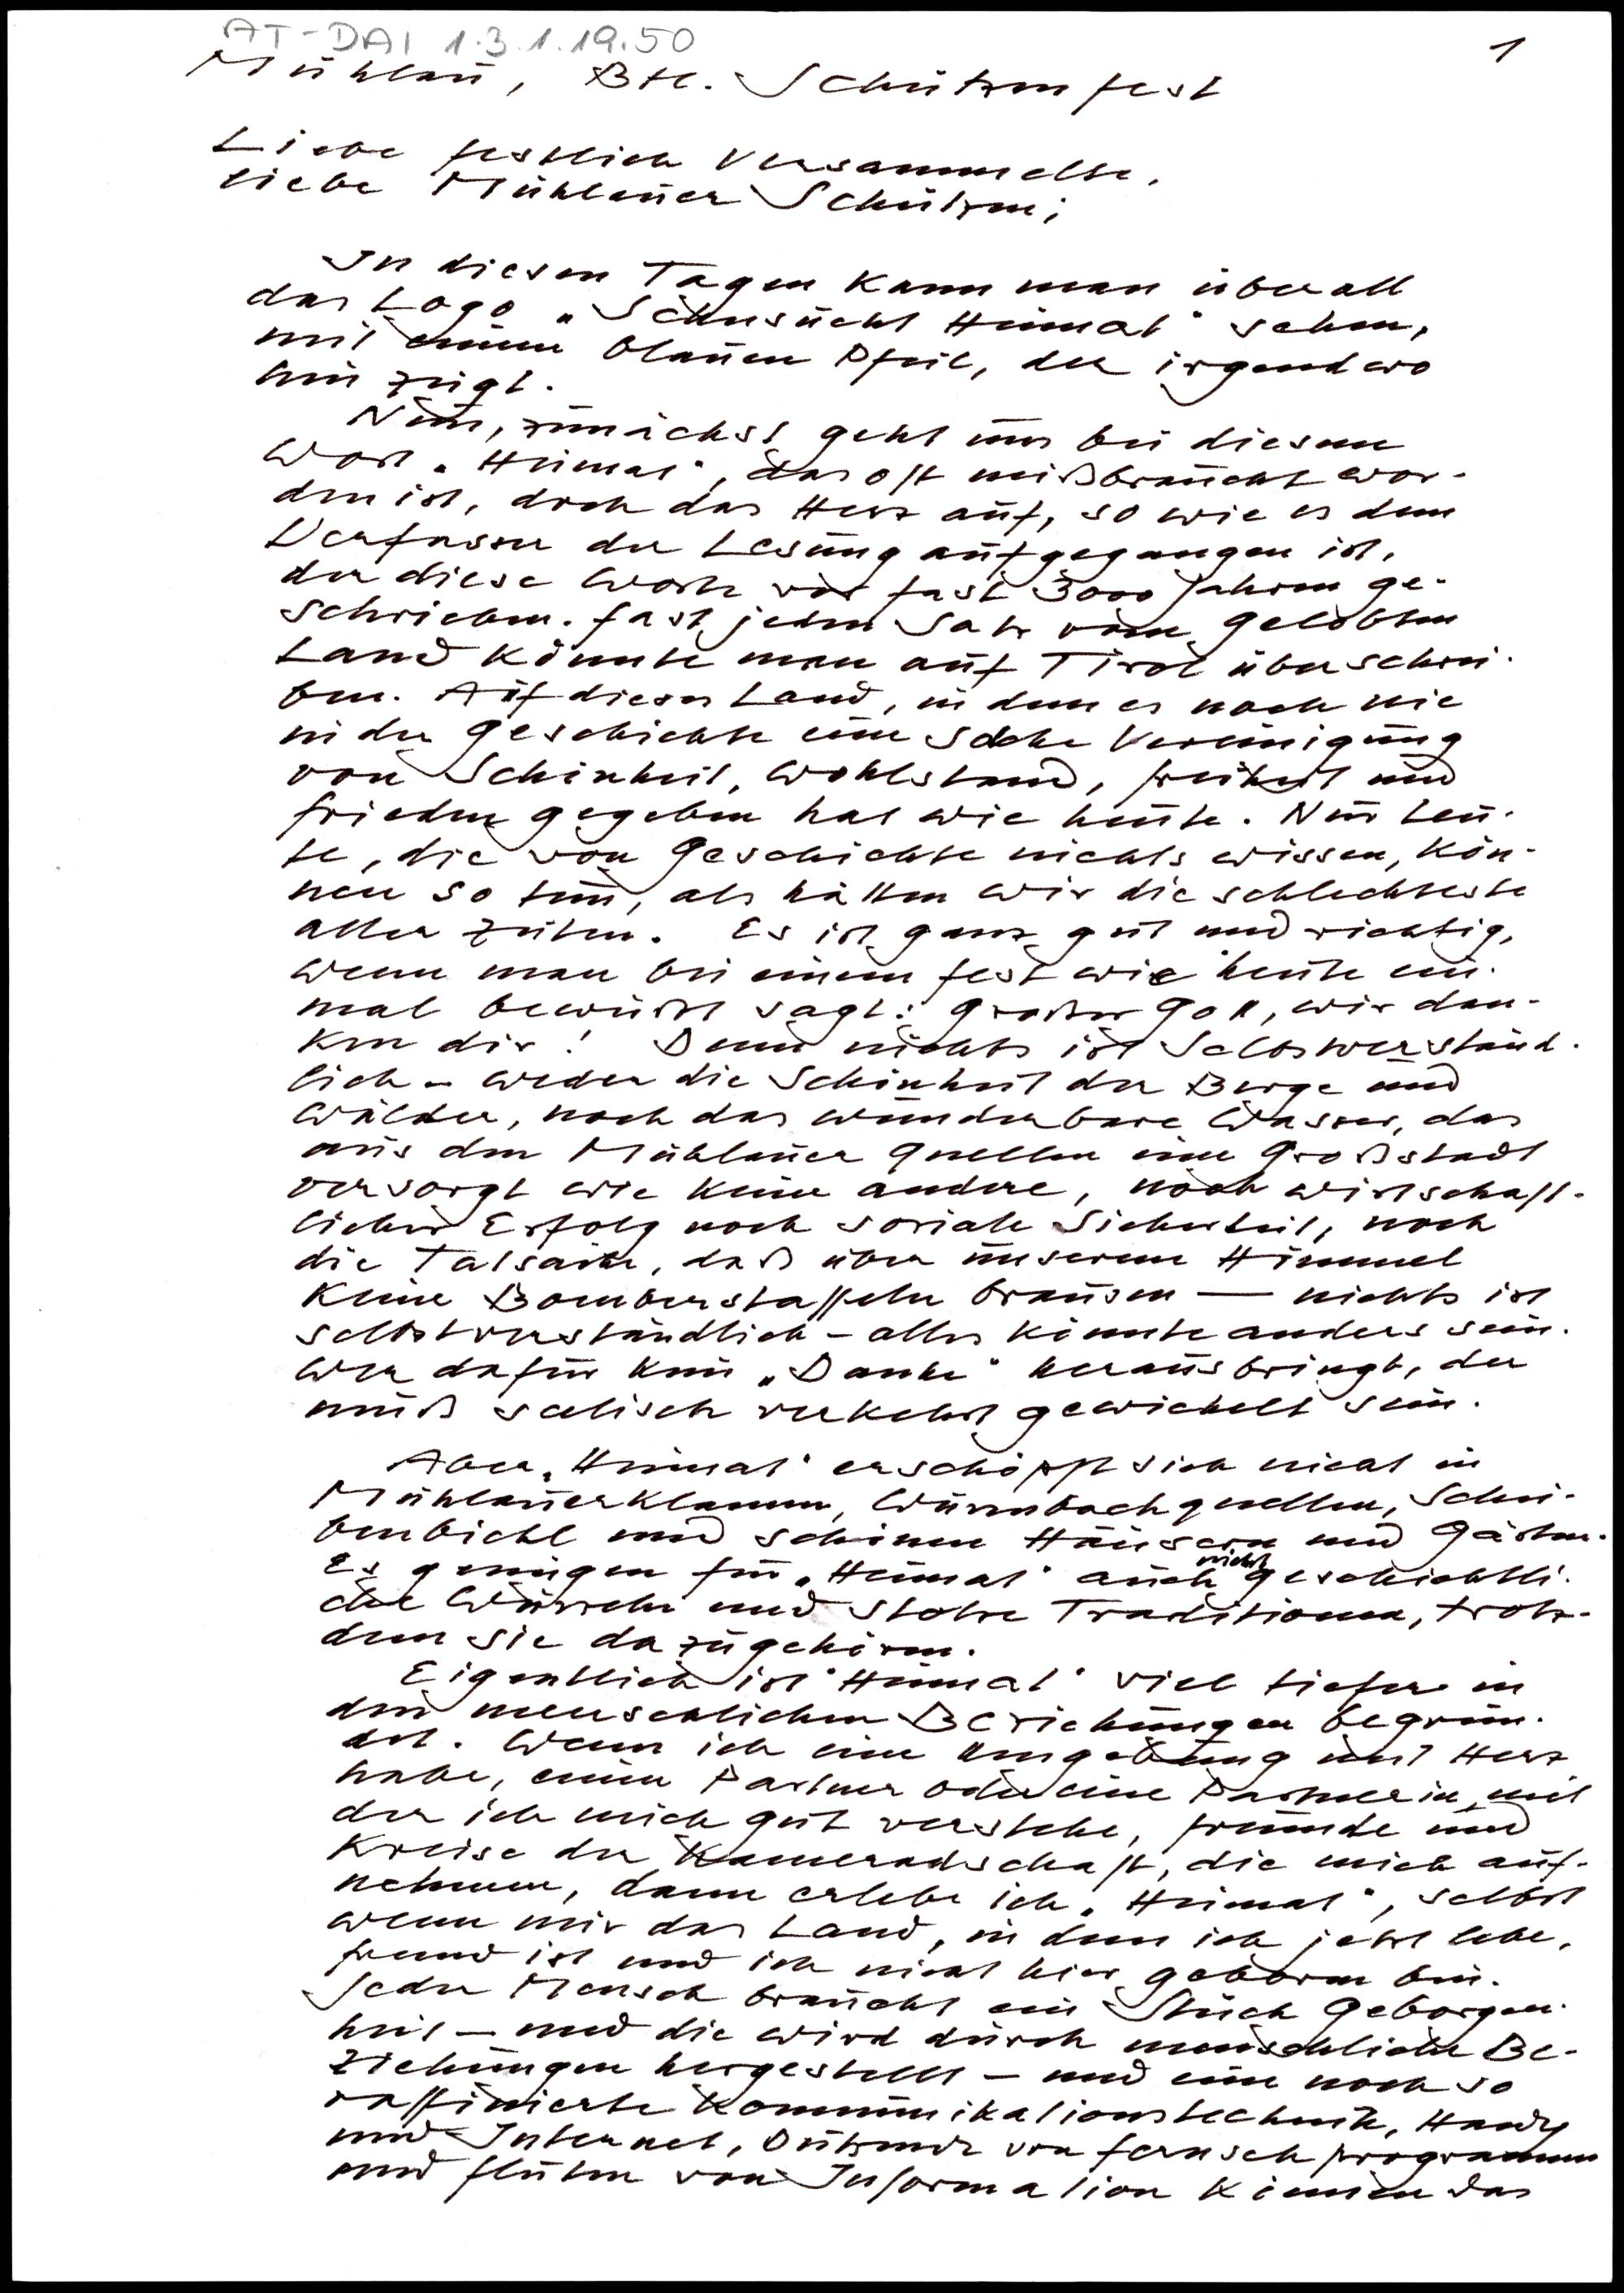 AT-DAI 1.3.1.19.50
1
Mühlau, Btl. Schützenfest
Liebe festlich Versammelte,
liebe Mühlauer Schützen;
In diesen Tagen kann man überall
das Logo „Sehnsucht Heimat" sehen,
mit einem blauen Pfeil, der irgendwo
hin zeigt.
Nun, zunächst geht uns bei diesem
Wort „Heimat", das oft mißbraucht wor-
den ist, doch das Herz auf, so wie es dem
Verfasser der Lesung aufgegangen ist,
der diese Worte vor fast 3000 Jahren ge-
schrieben. Fast jeden Satz vom gelobten
Land könnte man auf Tirol überschrei-
ben. Auf dieses Land, in dem es noch nie
in der Geschichte eine solche Vereinigung
von Schönheit, Wohlstand, Freiheit und
Frieden gegeben hat wie heute. Nur Leu-
te, die von Geschichte nichts wissen, kön-
nen so tun, als hätten wir die schlechteste
aller Zeiten. Es ist ganz gut und richtig,
wenn man bei einem Fest wie heute ein-
mal bewußt sagt: Großer Gott, wir dan-
ken dir! Denn nichts ist selbstverständ-
lich – weder die Schönheit der Berge und
Wälder, noch das wunderbare Wasser, das
aus den Mühlauer Quellen eine Großstadt
versorgt wie keine andere, noch wirtschaft-
licher Erfolg noch soziale Sicherheit, noch
die Tatsache, daß über unserem Himmel
keine Bomberstaffeln brausen — nichts ist
selbstverständlich – alles könnte anders sein.
Wer dafür kein „Danke" herausbringt, der
muß seelisch verkehrt gewickelt sein.
Aber „Heimat" erschöpft sich nicht in
Mühlauerklamm, Wurmbachquellen, Schei-
benbichl und schönen Häusern und Gärten.
Es genügen für „Heimat" auch nicht geschichtli-
che Wurzeln und stolze Traditionen, trotz-
dem sie dazugehören.
Eigentlich ist "Heimat" viel tiefer in
den menschlichen Beziehungen begrün-
det. Wenn ich eine Umgebung mit Herz
habe, einen Partner oder eine Partnerin, mit
der ich mich gut verstehe, Freunde und
Kreise der Kameradschaft, die mich auf-
nehmen, dann erlebe ich „Heimat", selbst
wenn mir das Land, in dem ich jetzt lebe,
fremd ist und ich nicht hier geboren bin.
Jeder Mensch braucht ein Stück Geborgen-
heit – und die wird durch menschliche Be-
ziehungen hergestellt – und eine noch so
raffinierte Kommunikationstechnik, Handy
und Internet, Dutzende von Fernsehprogrammen
und Fluten von Information können das